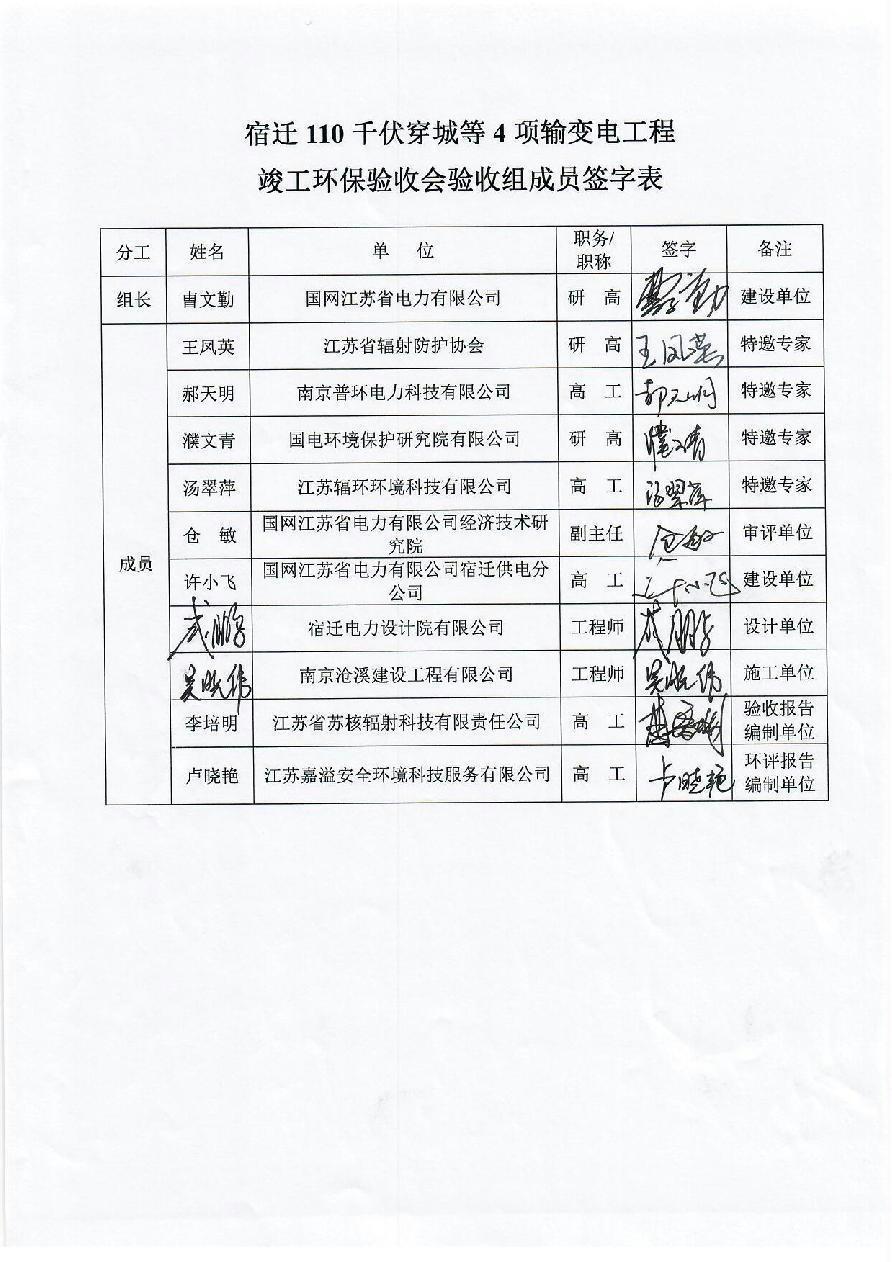 宿迁 110 千伏穿城等 4 项输变电工程
竣工环保验收会验收组成员签字表
分工 姓名 单 位 职务/职称 签字 备注
组长 曺文勤 国网江苏省电力有限公司 研 高 建设单位
成员
王凤英 江苏省辐射防护协会 研 高 王凤英 特邀专家
郝天明 南京普环电力科技有限公司 高 工 郝天明 特邀专家
濮文青 国电环境保护研究院有限公司 研 高 濮文青 特邀专家
汤翠萍 江苏辐环环境科技有限公司 高 工 汤翠萍 特邀专家
仓 敏 国网江苏省电力有限公司经济技术研究院 副主任 仓敏 审评单位
许小飞 国网江苏省电力有限公司宿迁供电分公司 高 工 许小飞 建设单位
宿迁电力设计院有限公司 工程师 设计单位
吴晓伟 南京沧溪建设工程有限公司 工程师 吴晓伟 施工单位
李培明 江苏省苏核辐射科技有限责任公司 高 工 验收报告编制单位
卢晓艳 江苏嘉溢安全环境科技服务有限公司 高 工 卢晓艳 环评报告编制单位